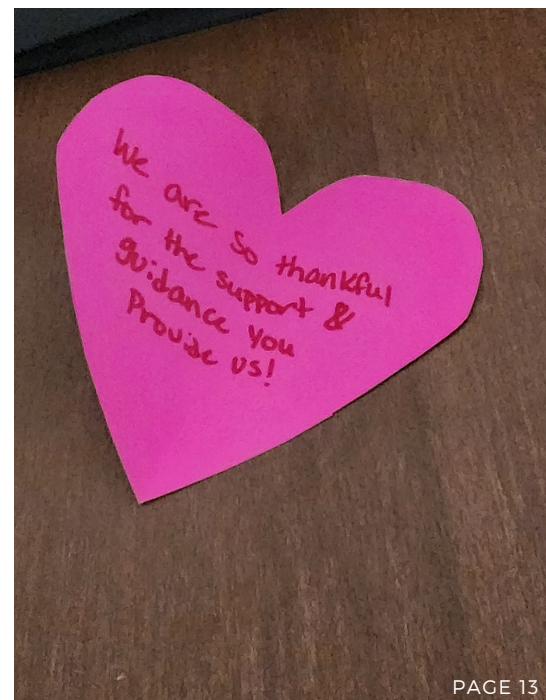 We are so thankful
for the support &
guidance you
Provide us!
PAGE 13